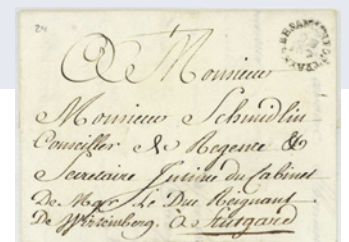 24
A Monsieur
Monsieur Schmidlin
Conseiller & Regence &
Secretaire Intime du Cabinet
De Mgr Le Duc Reignant
De Wirtemberg. à Stutgard